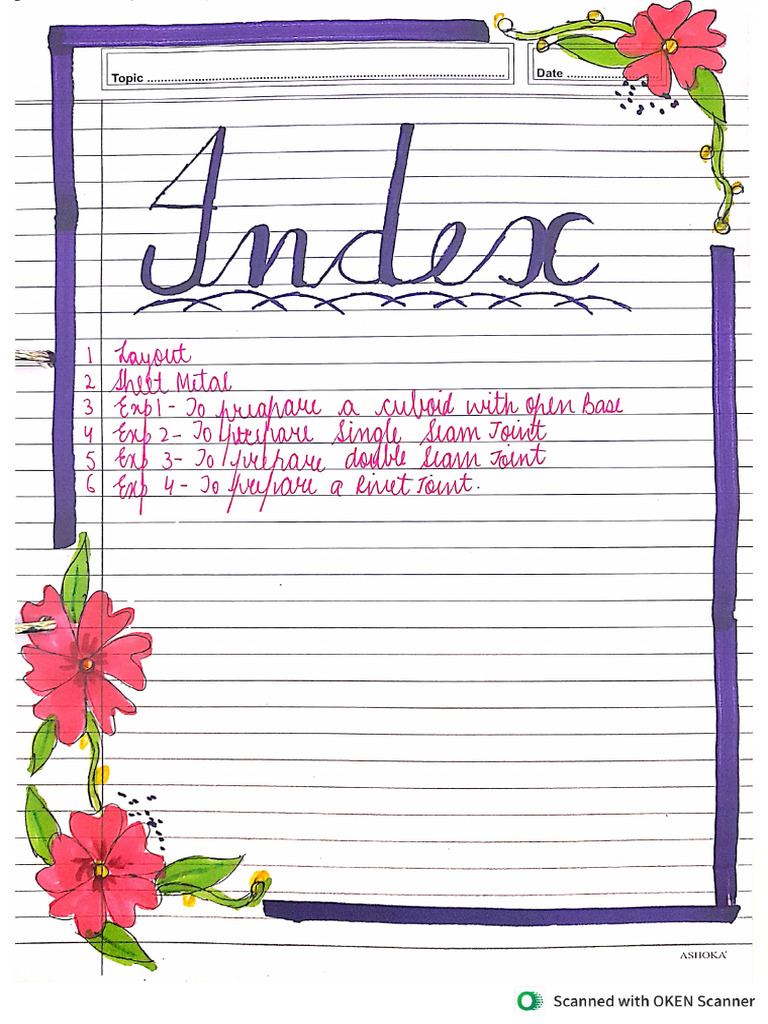 Topic ........................................ Date ....................
Index
1 Layout
2 Sheet Metal
3 Exp1 - To preapare a cuboid with open Base
4 Exp 2 - To prepare Single Seam Joint
5 Exp 3 - To prepare double Seam Joint
6 Exp 4 - To prepare a Rivet Joint.
ASHOKA
Scanned with OKEN Scanner